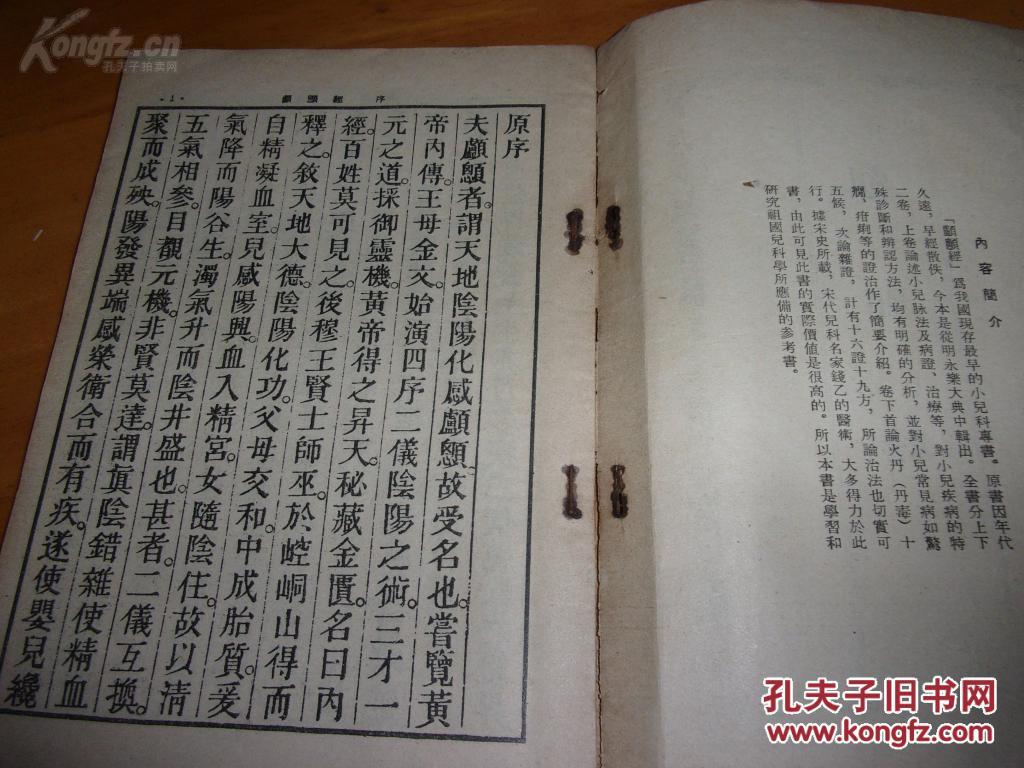 Kongfz.cn
孔夫子拍卖网
內容簡介
「顱顖經」爲我國現存最早的小兒科專書。原書因年代
久遠，早經散佚，今本是從明永樂大典中輯出。全書分上下
二卷，上卷論述小兒脉法及病證、治療等，對小兒疾病的特
殊診斷和辨認方法，均有明確的分析，並對小兒常見病如驚
癎，疳痢等的證治作了簡要介紹。卷下首論火丹（丹毒）十
五候，次論雜證，計有十六證十九方，所論治法也切實可
行。據宋史所載，宋代兒科名家錢乙的醫術，大多得力於此
書，由此可見此書的實際價值是很高的。所以本書是學習和
研究祖國兒科學所應備的參考書。
顱顖經 序
·1·
原序
夫顱顖者。謂天地陰陽化感顱顖。故受名也。嘗覽黃
帝內傳。王母金文。始演四序二儀陰陽之術。三才一
元之道。採御靈機。黃帝得之昇天。秘藏金匱。名曰內
經。百姓莫可見之。後穆王賢士師巫。於崆峒山得而
釋之。敘天地大德。陰陽化功。父母交和。中成胎質。爰
自精凝血室。兒感陽興。血入精宮。女隨陰住。故以清
氣降而陽谷生。濁氣升而陰井盛也。甚者。二儀互換。
五氣相參。目覩元機。非賢莫達。謂眞陰錯雜。使精血
聚而成殃。陽發異端。感榮衛合而有疾。遂使嬰兒纔
孔夫子旧书网
www.kongfz.com